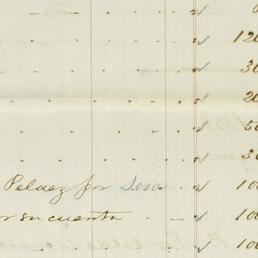 120
30
20
50
30
Pelaez por Sosa 100
or su cuenta 100
100